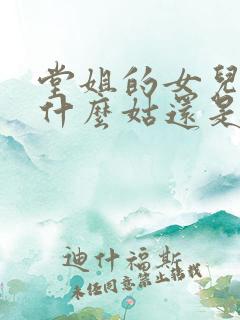 堂姐的女兒
什麼姑還是
迪什福斯
未经同意禁止转载